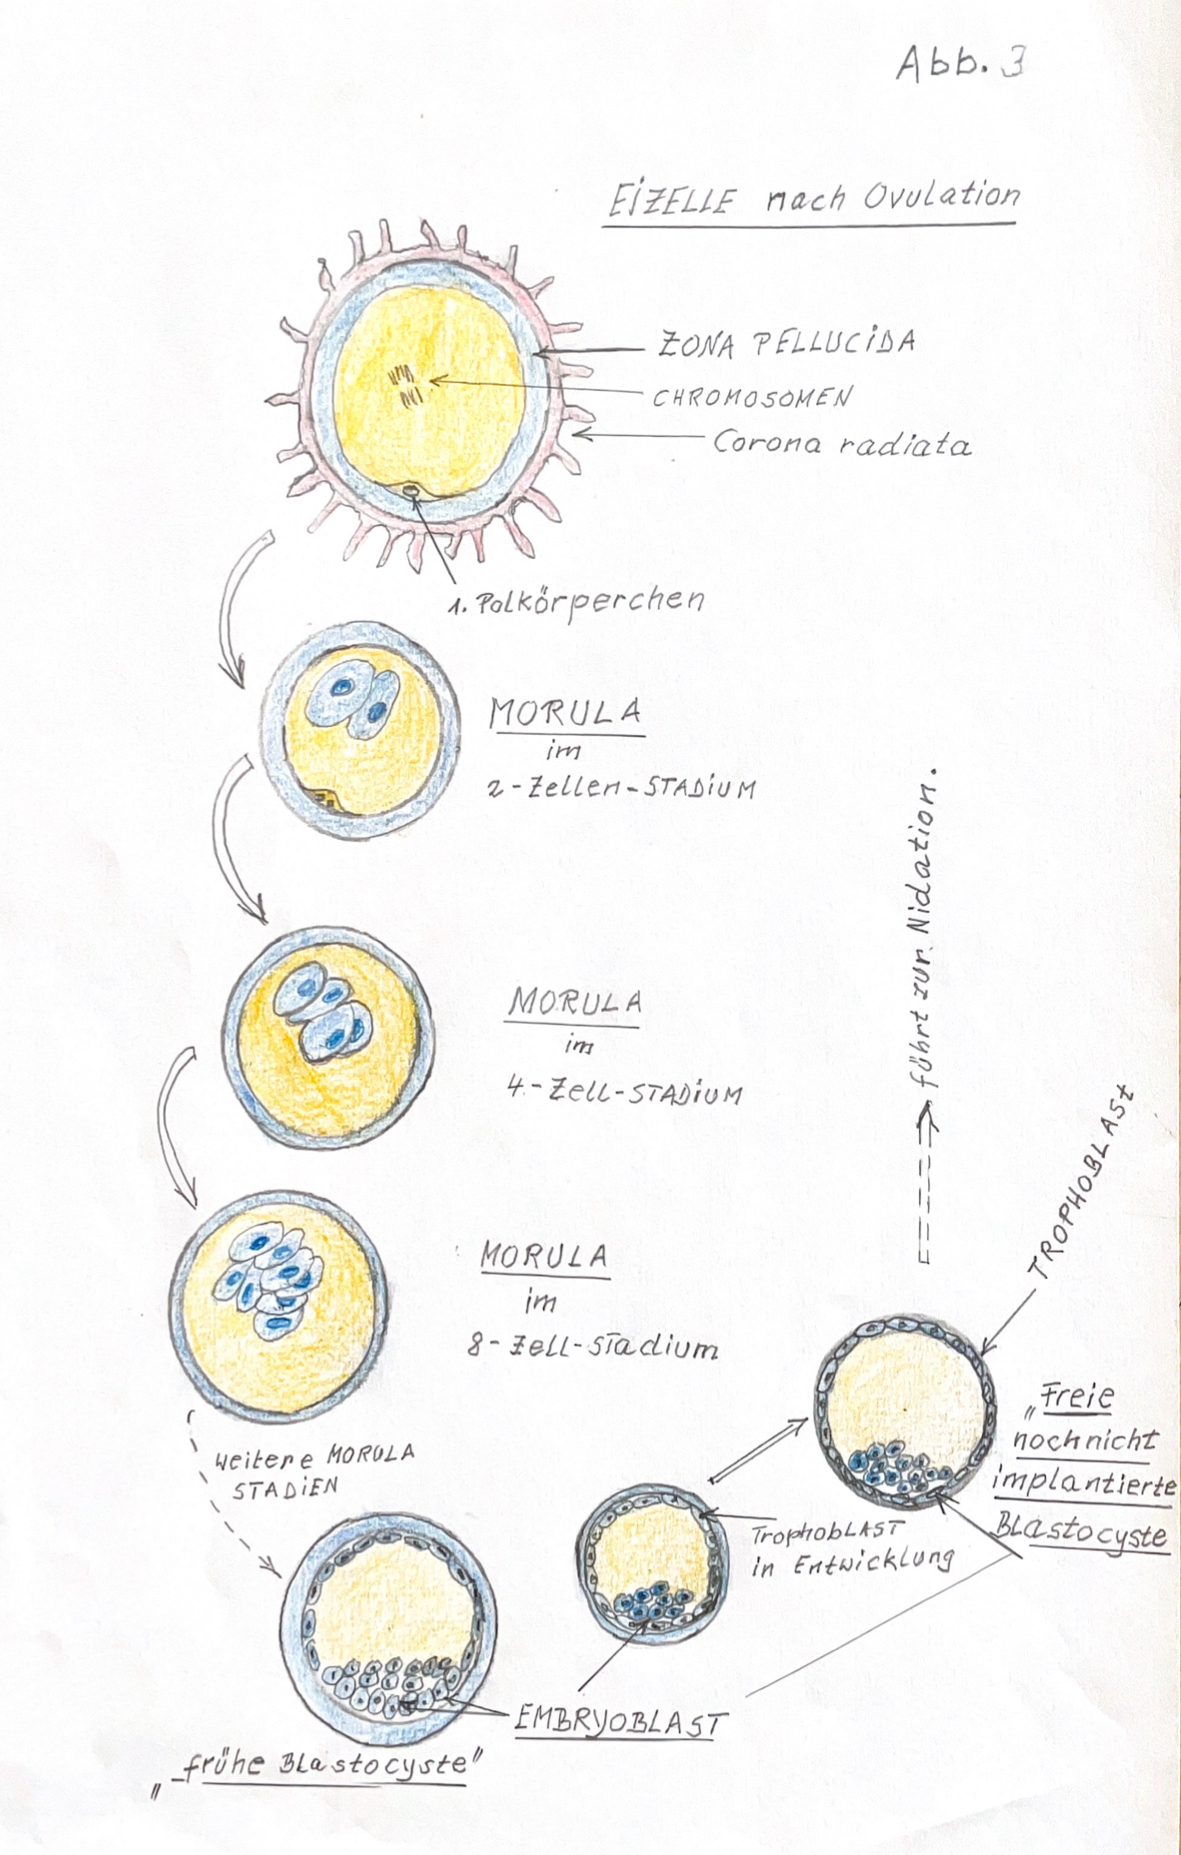 Abb. 3
EiZELLE nach Ovulation
ZONA PELLUCiDA
CHROMOSOMEN
Corona radiata
1. Polkörperchen
MORULA
im
2-Zellen-STADiUM
MORULA
im
4-Zell-STADiUM
MORULA
im
8-Zell-Stadium
weitere MORULA
STADiEN
führt zur Nidation.
TROPHOBLASt
„Freie
noch nicht
implantierte
BLastocyste
TrophoBLAST
in Entwicklung
EMBRYOBLAST
„frühe BLastocyste"